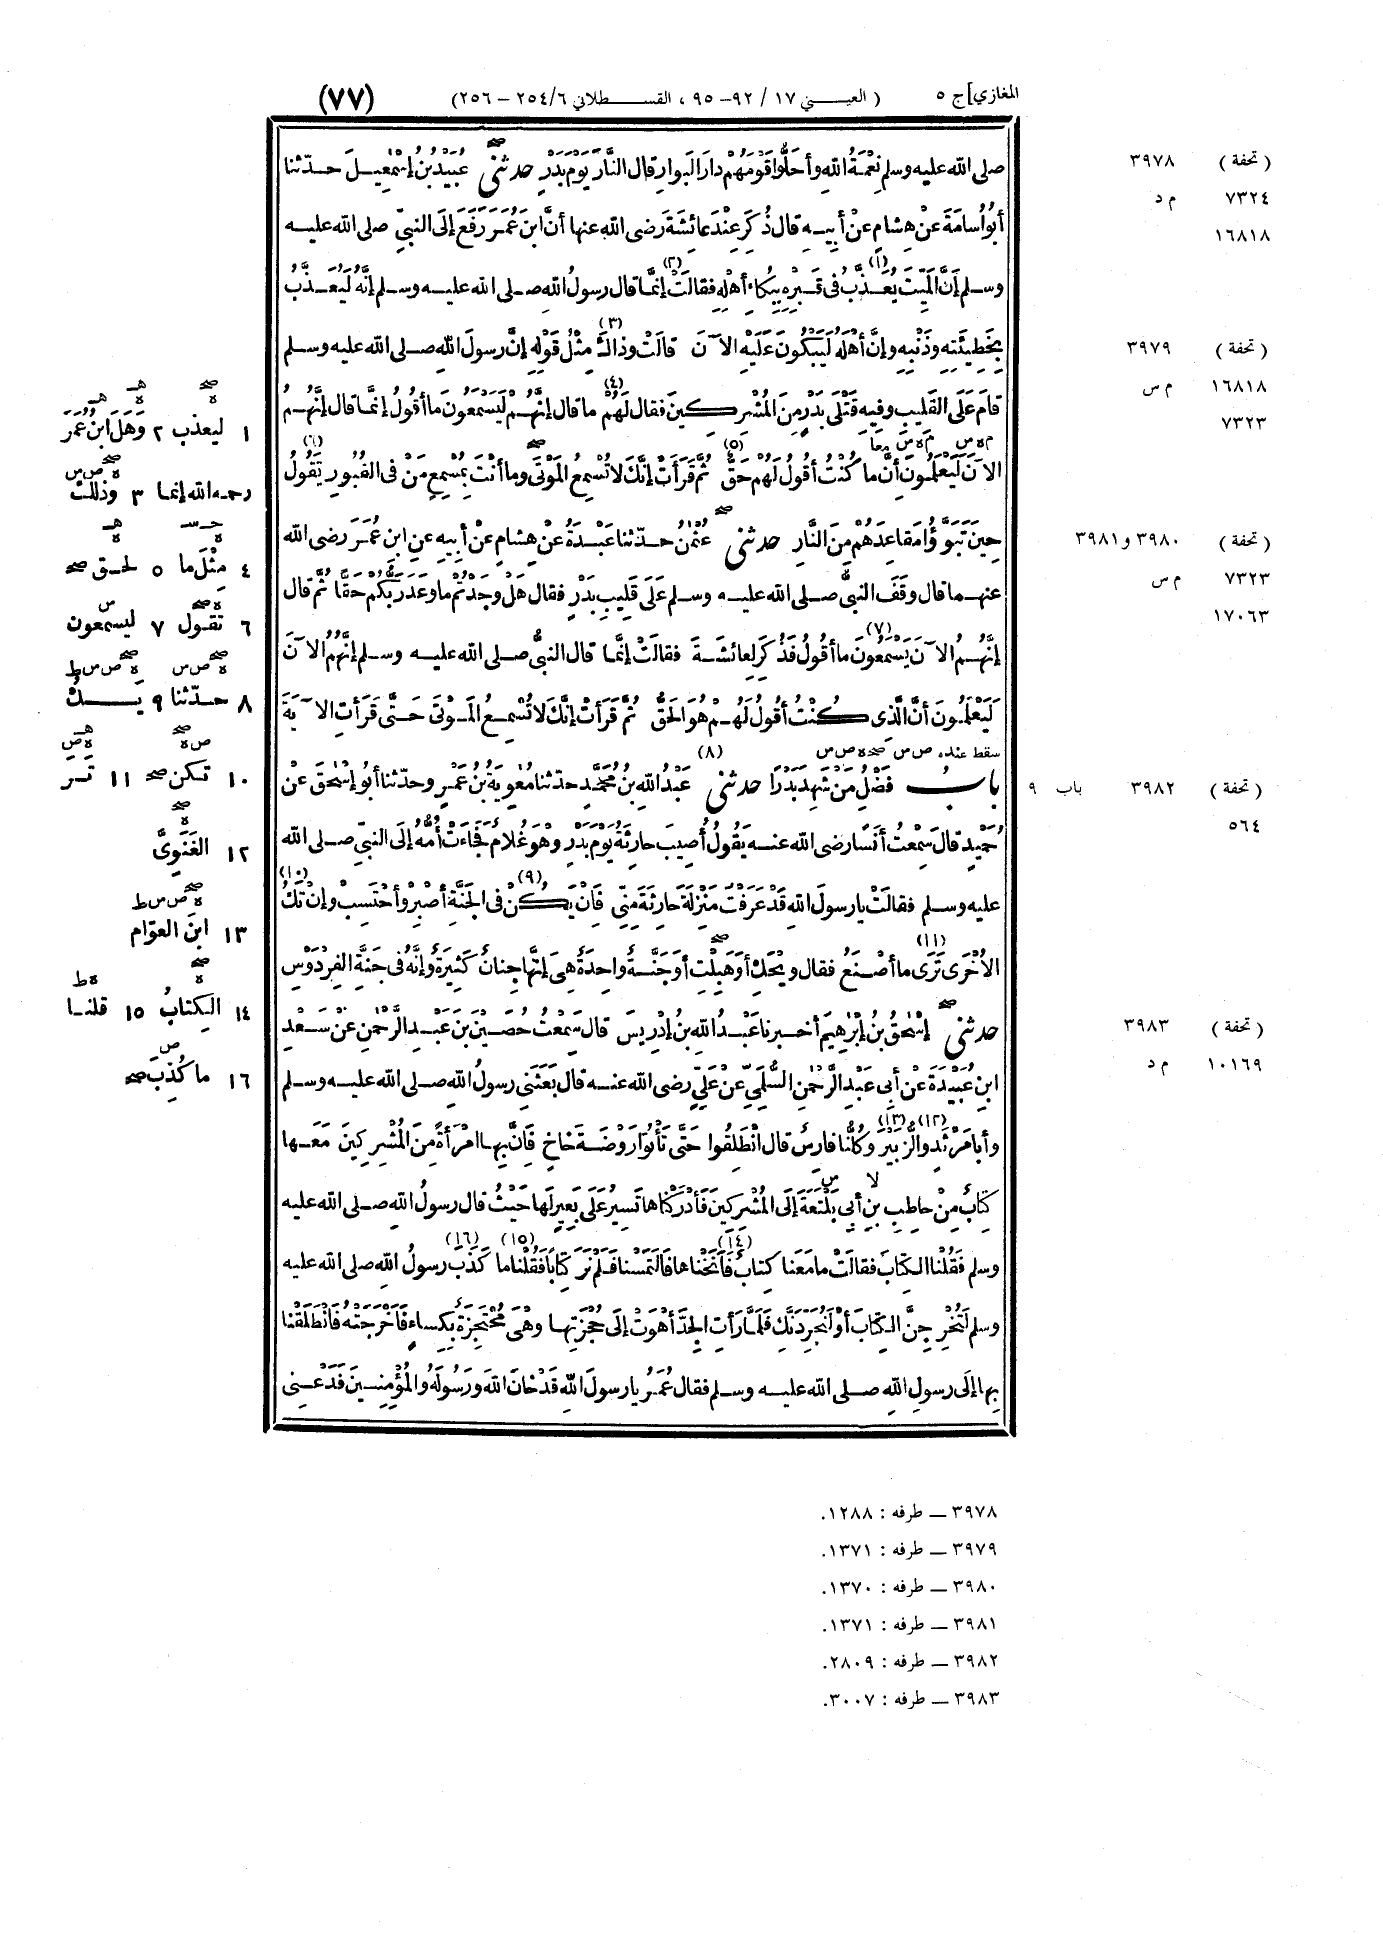 المغازي] ج ٥ ( العيـــني ١٧ / ٩٢ – ٩٥ ، القســـطلاني ٦/ ٢٥٤ – ٢٥٦) (٧٧)
صلى الله عليه وسلم نِعْمَةُ اللهِ وأَحَلُّوا قَوْمَهُمْ دارَ البَوارِ قال النَّارَ يَوْمَ بَدْرٍ حدثني عُبَيْدُ بنُ إسْمعِيلَ حدّثنا
أبُو أُسامَةَ عنْ هِشامٍ عنْ أبِيهِ قال ذُكِرَ عِنْدَ عائِشَةَ رضى الله عنها أنَّ ابنَ عُمَرَ رَفَعَ إلَى النبيِّ صلى الله عليه
وسلم إنَّ المَيِّتَ يُعَذَّبُ (١) فى قَبْرِهِ بِبُكاءِ أهْلِهِ فقالَتْ (٢) إنَّما قال رسولُ اللهِ صلى الله عليه وسلم إنَّهُ لَيُعَذَّبُ
بِخَطِيئَتِهِ وذَنْبِهِ وإنَّ أهْلَهُ لَيَبْكُونَ عَلَيْهِ الآنَ قالَتْ وذاكَ (٣) مِثْلُ قَوْلِهِ إنَّ رسولَ اللهِ صلى الله عليه وسلم
قامَ عَلَى القَلِيبِ وفِيهِ قَتْلَى بَدْرٍ مِنَ المُشْرِكِينَ فقال لَهُمْ (٤) ما قال إنَّهُمْ لَيَسْمَعُونَ ما أقُولُ إنَّما قال إنَّهُمُ
الآنَ لَيَعْلَمُونَ أنَّ ما كُنْتُ أقُولُ لَهُمْ حَقٌّ (٥) ثُمَّ قَرَأَتْ إنَّكَ لا تُسْمِعُ المَوْتَى وما أنْتَ بِمُسْمِعٍ مَنْ فى القُبُورِ تَقُولُ (٦)
حِينَ تَبَوَّؤُا مَقاعِدَهُمْ مِنَ النَّارِ حدثني عُثْمنُ حدّثنا عَبْدَةُ عنْ هِشامٍ عنْ أبِيهِ عنِ ابنِ عُمَرَ رضى الله
عنهما قال وقَفَ النبيُّ صلى الله عليه وسلم عَلَى قَلِيبِ بَدْرٍ فقال هَلْ وجَدْتُمْ ما وعَدَ رَبُّكُمْ حَقًّا ثُمَّ قال
إنَّهُمُ الآنَ يَسْمَعُونَ (٧) ما أقُولُ فَذُكِرَ لِعائِشَةَ فقالَتْ إنَّما قال النبيُّ صلى الله عليه وسلم إنَّهُمُ الآنَ
لَيَعْلَمُونَ أنَّ الَّذِى كُنْتُ أقُولُ لَهُمْ هُوَ الحَقُّ ثُمَّ قَرَأَتْ إنَّكَ لا تُسْمِعُ المَوْتَى حَتَّى قَرَأَتِ الآيَةَ
بابُ فَضْلِ مَنْ شَهِدَ بَدْرًا حدثني (٨) عَبْدُ اللهِ بنُ مُحَمَّدٍ حدثنا مُعٰوِيَةُ بنُ عَمْرٍو حدّثنا أبُو إسْحٰقَ عنْ
حُمَيْدٍ قالَ سَمِعْتُ أنَسًا رضى الله عنه يَقُولُ أُصِيبَ حارِثَةُ يَوْمَ بَدْرٍ وهْوَ غُلامٌ فَجاءَتْ أُمُّهُ إلَى النبيِّ صلى الله
عليه وسلم فقالَتْ يا رسولَ اللهِ قَدْ عَرَفْتَ مَنْزِلَةَ حارِثَةَ مِنِّى فَإنْ يَكُنْ (٩) فى الجَنَّةِ أصْبِرْ وأحْتَسِبْ وإنْ تَكُ (١٠)
الأُخْرَى تَرَى (١١) ما أصْنَعُ فقال ويْحَكِ أوَ هَبِلْتِ أوَ جَنَّةٌ واحِدَةٌ هِىَ إنَّها جِنانٌ كَثِيرَةٌ وإنَّهُ فى جَنَّةِ الفِرْدَوْسِ
حدثني إسْحٰقُ بنُ إبْرٰهِيمَ أخبرنا عَبْدُ اللهِ بنُ إدْرِيسَ قال سَمِعْتُ حُصَيْنَ بنَ عَبْدِ الرَّحْمٰنِ عنْ سَعْدِ
ابنِ عُبَيْدَةَ عنْ أبى عَبْدِ الرَّحْمٰنِ السُّلَمِىِّ عنْ عَلِىٍّ رضى الله عنه قال بَعَثَنِى رسولُ اللهِ صلى الله عليه وسلم
وأبا مَرْثَدٍ (١٢) والزُّبَيْرَ (١٣) وكُلُّنا فارِسٌ قال انْطَلِقُوا حَتَّى تَأْتُوا رَوْضَةَ خاخٍ فَإنَّ بِها امْرَأَةً مِنَ المُشْرِكِينَ مَعَها
كِتابٌ مِنْ حاطِبِ بنِ أبى بَلْتَعَةَ إلَى المُشْرِكِينَ فَأَدْرَكْناها تَسِيرُ عَلَى بَعِيرٍ لَها حَيْثُ قال رسولُ اللهِ صلى الله عليه
وسلم فَقُلْنا الكِتابَ فقالَتْ ما مَعَنا كِتابٌ (١٤) فَأَنَخْناها فَالْتَمَسْنا فَلَمْ نَرَ كِتابًا فَقُلْنا (١٥) ما كَذَبَ (١٦) رسولُ اللهِ صلى الله عليه
وسلم لَتُخْرِجِنَّ الكِتابَ أوْ لَنُجَرِّدَنَّكِ فَلَمَّا رَأَتِ الجِدَّ أهْوَتْ إلَى حُجْزَتِها وهْىَ مُحْتَجِزَةٌ بِكِساءٍ فَأَخْرَجَتْهُ فَانْطَلَقْنا
بِها إلَى رسولِ اللهِ صلى الله عليه وسلم فقال عُمَرُ يا رسولَ اللهِ قَدْ خانَ اللهَ ورَسُولَهُ والمُؤْمِنِينَ فَدَعْنِى
( تحفة ) ٣٩٧٨
٧٣٢٤ م د
١٦٨١٨
( تحفة ) ٣٩٧٩
١٦٨١٨ م س
٧٣٢٣
( تحفة ) ٣٩٨٠ و ٣٩٨١
٧٣٢٣ م س
١٧٠٦٣
( تحفة ) ٣٩٨٢ باب ٩
٥٦٤
( تحفة ) ٣٩٨٣
١٠١٦٩ م د
١ ليعذب ٢ وَهَلَ ابنُ عُمَرَ
رحمه الله إنما ٣ وذلك
٤ مِثْلَ ما ٥ لحق
٦ تقول ٧ ليسمعون
٨ حدّثنا ٩ يَكُ
١٠ تكن ١١ تَرَ
١٢ الغَنَوِىَّ
١٣ ابنَ العوّام
١٤ الكِتابُ ١٥ قلنا
١٦ ما كُذِبَ
٣٩٧٨ — طرفه : ١٢٨٨.
٣٩٧٩ — طرفه : ١٣٧١.
٣٩٨٠ — طرفه : ١٣٧٠.
٣٩٨١ — طرفه : ١٣٧١.
٣٩٨٢ — طرفه : ٢٨٠٩.
٣٩٨٣ — طرفه : ٣٠٠٧.